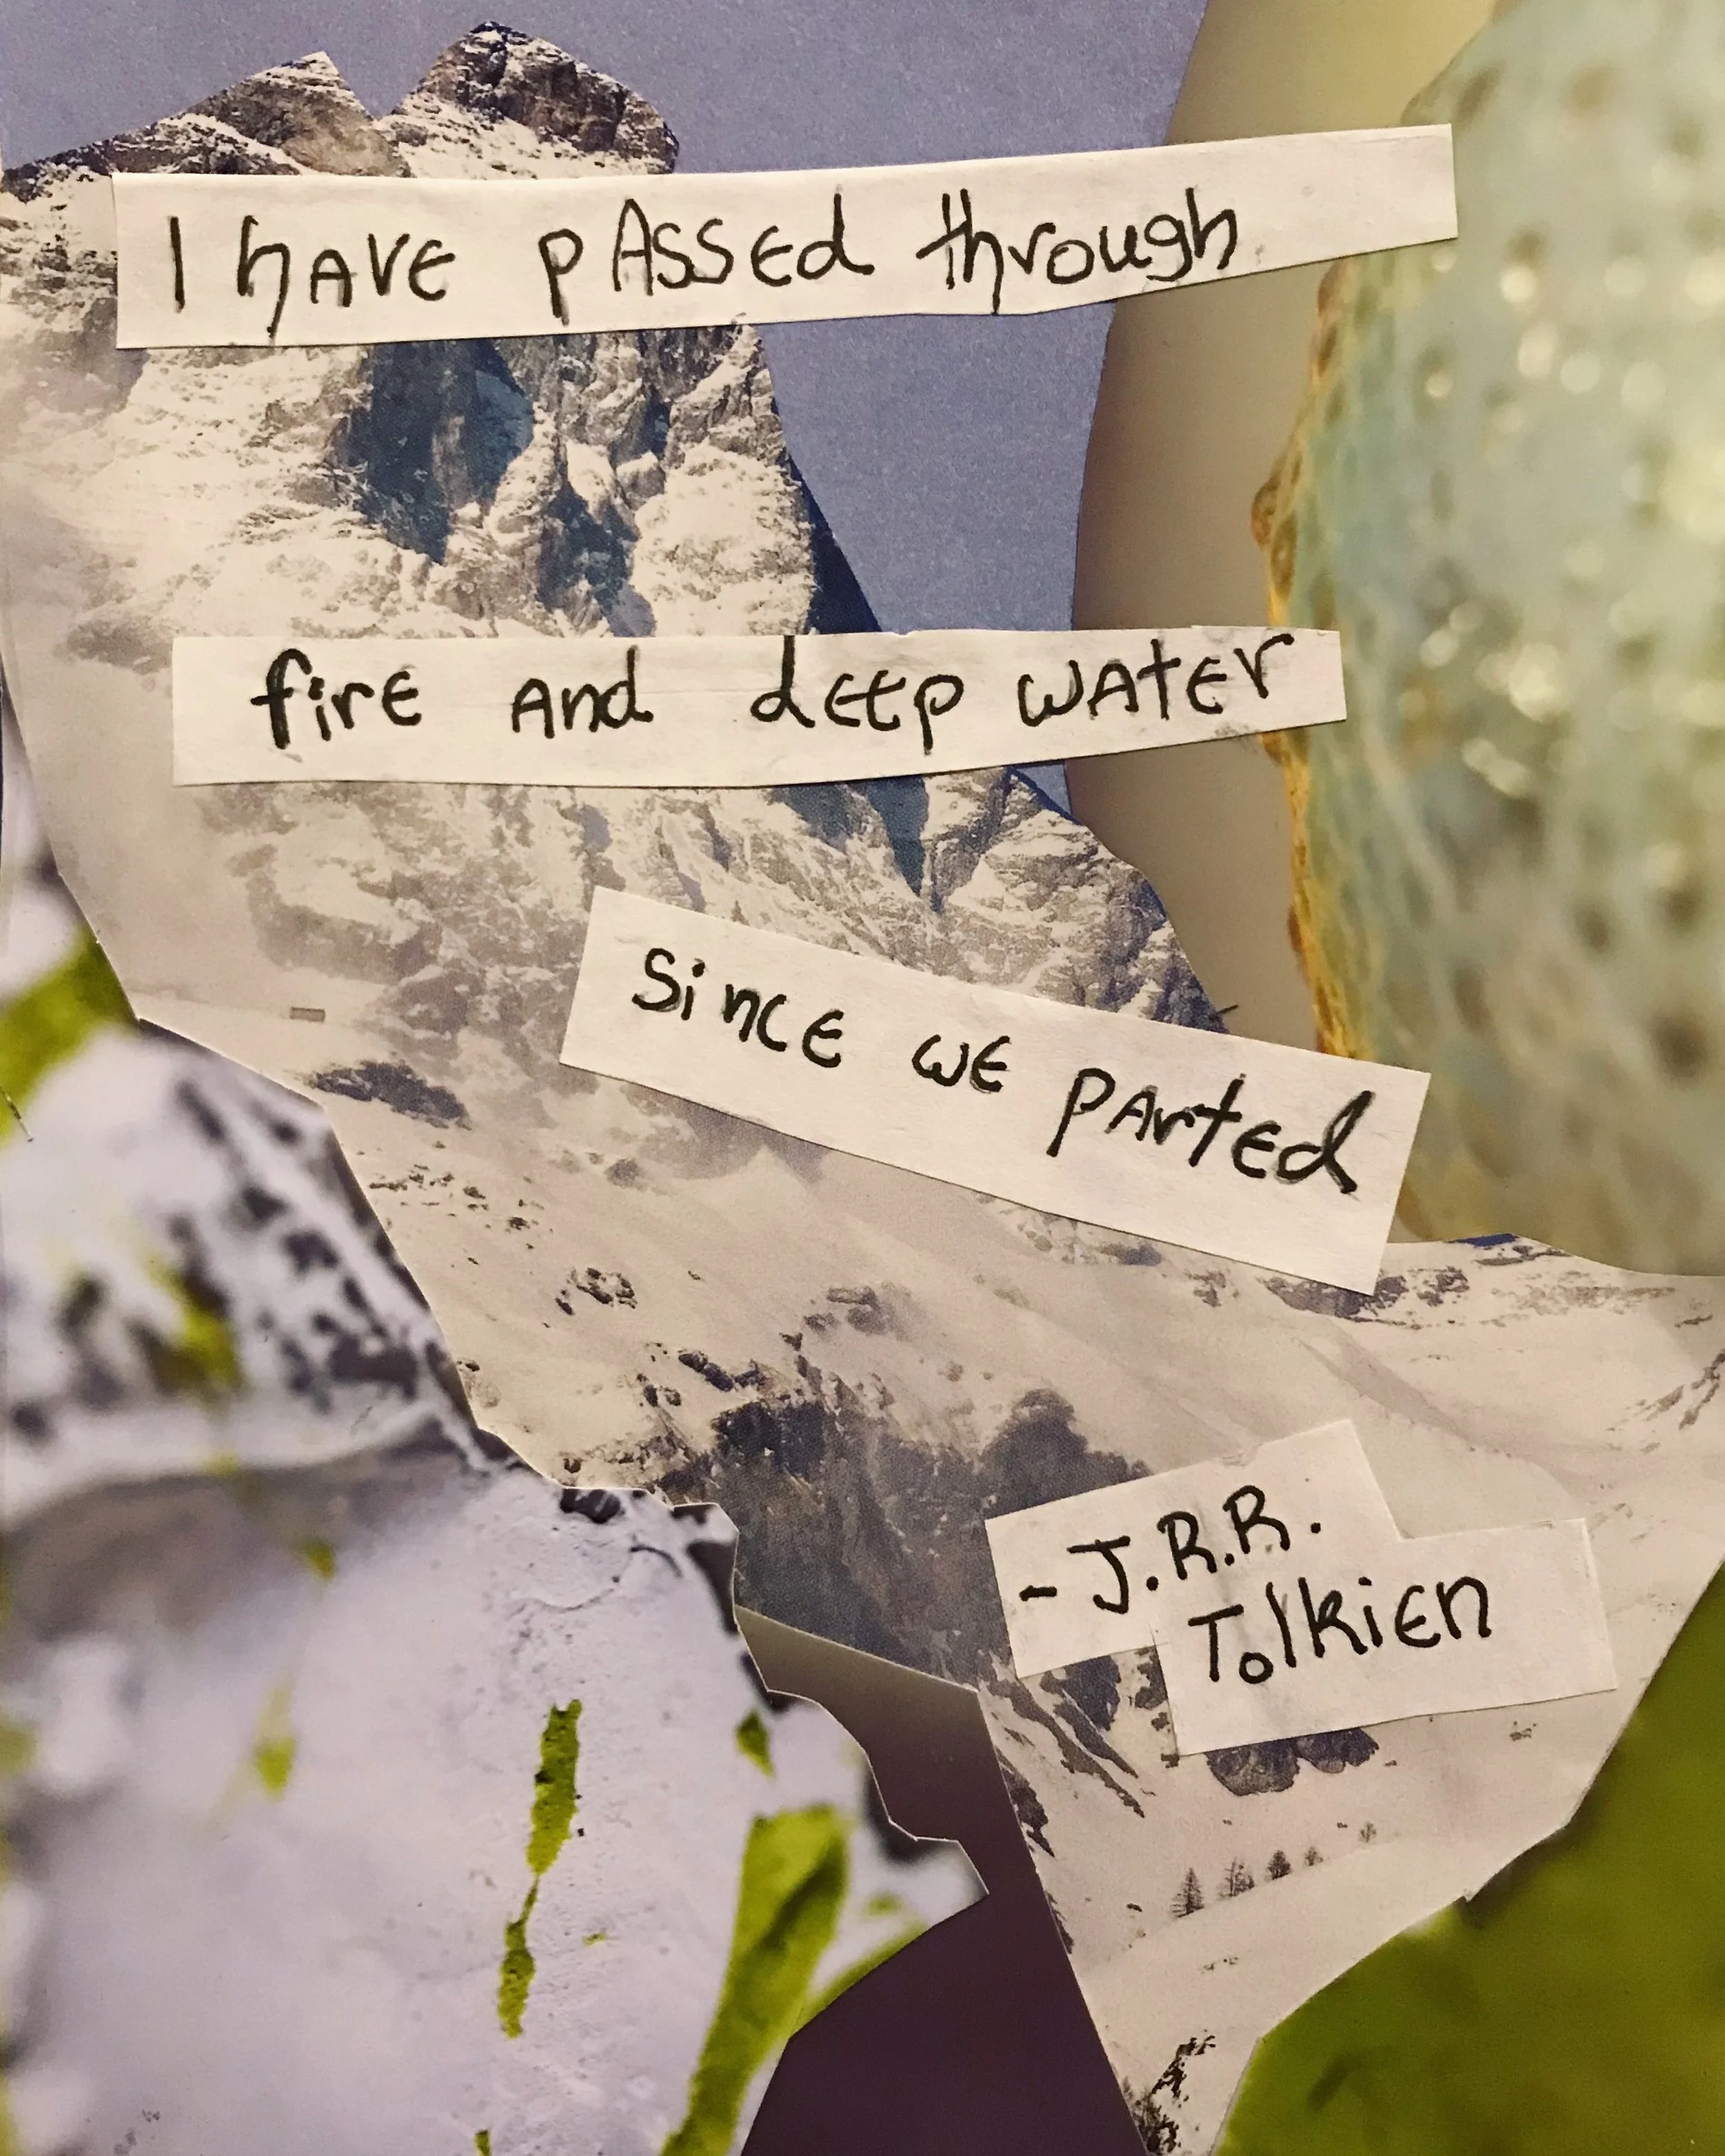 I have passed through
fire and deep water
since we parted
- J.R.R.
Tolkien